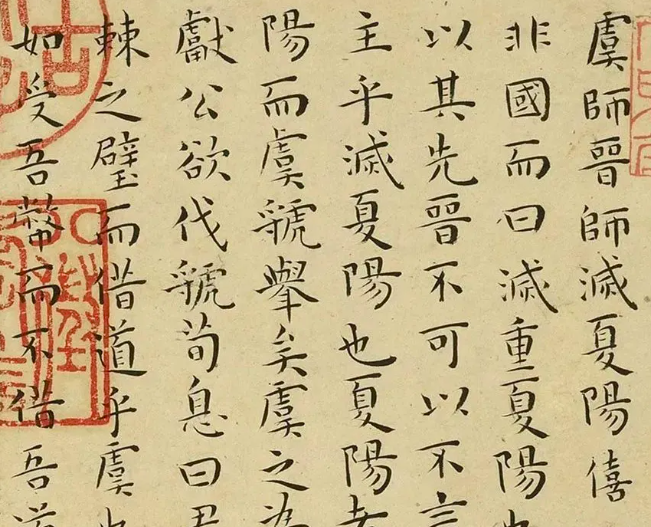 虞師晉師滅夏陽僖
非國而曰滅重夏陽也
以其先晉不可以不言
主乎滅夏陽也夏陽者
陽而虞虢舉矣虞之為
獻公欲伐虢荀息曰君
棘之璧而借道乎虞也
如受吾幣而不借吾道